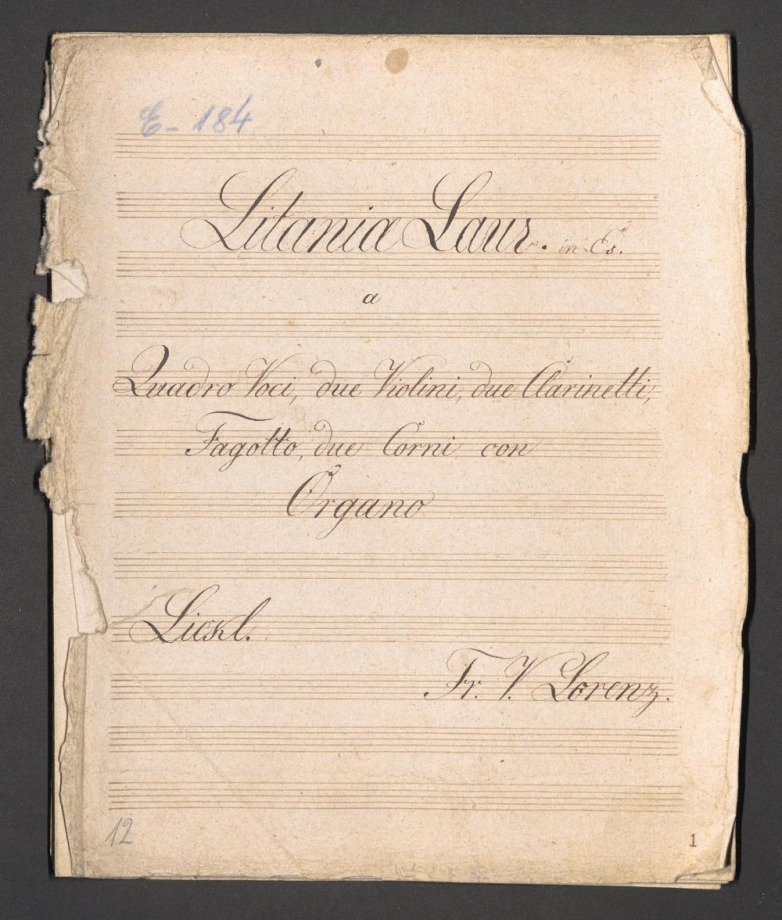 E- 184
Litania Laur. in Es.
a
Quadro Voci, due Violini, due Clarinetti,
Fagotto, due Corni con
Organo
Lickl.
Fr. V. Lorenz.
12
1